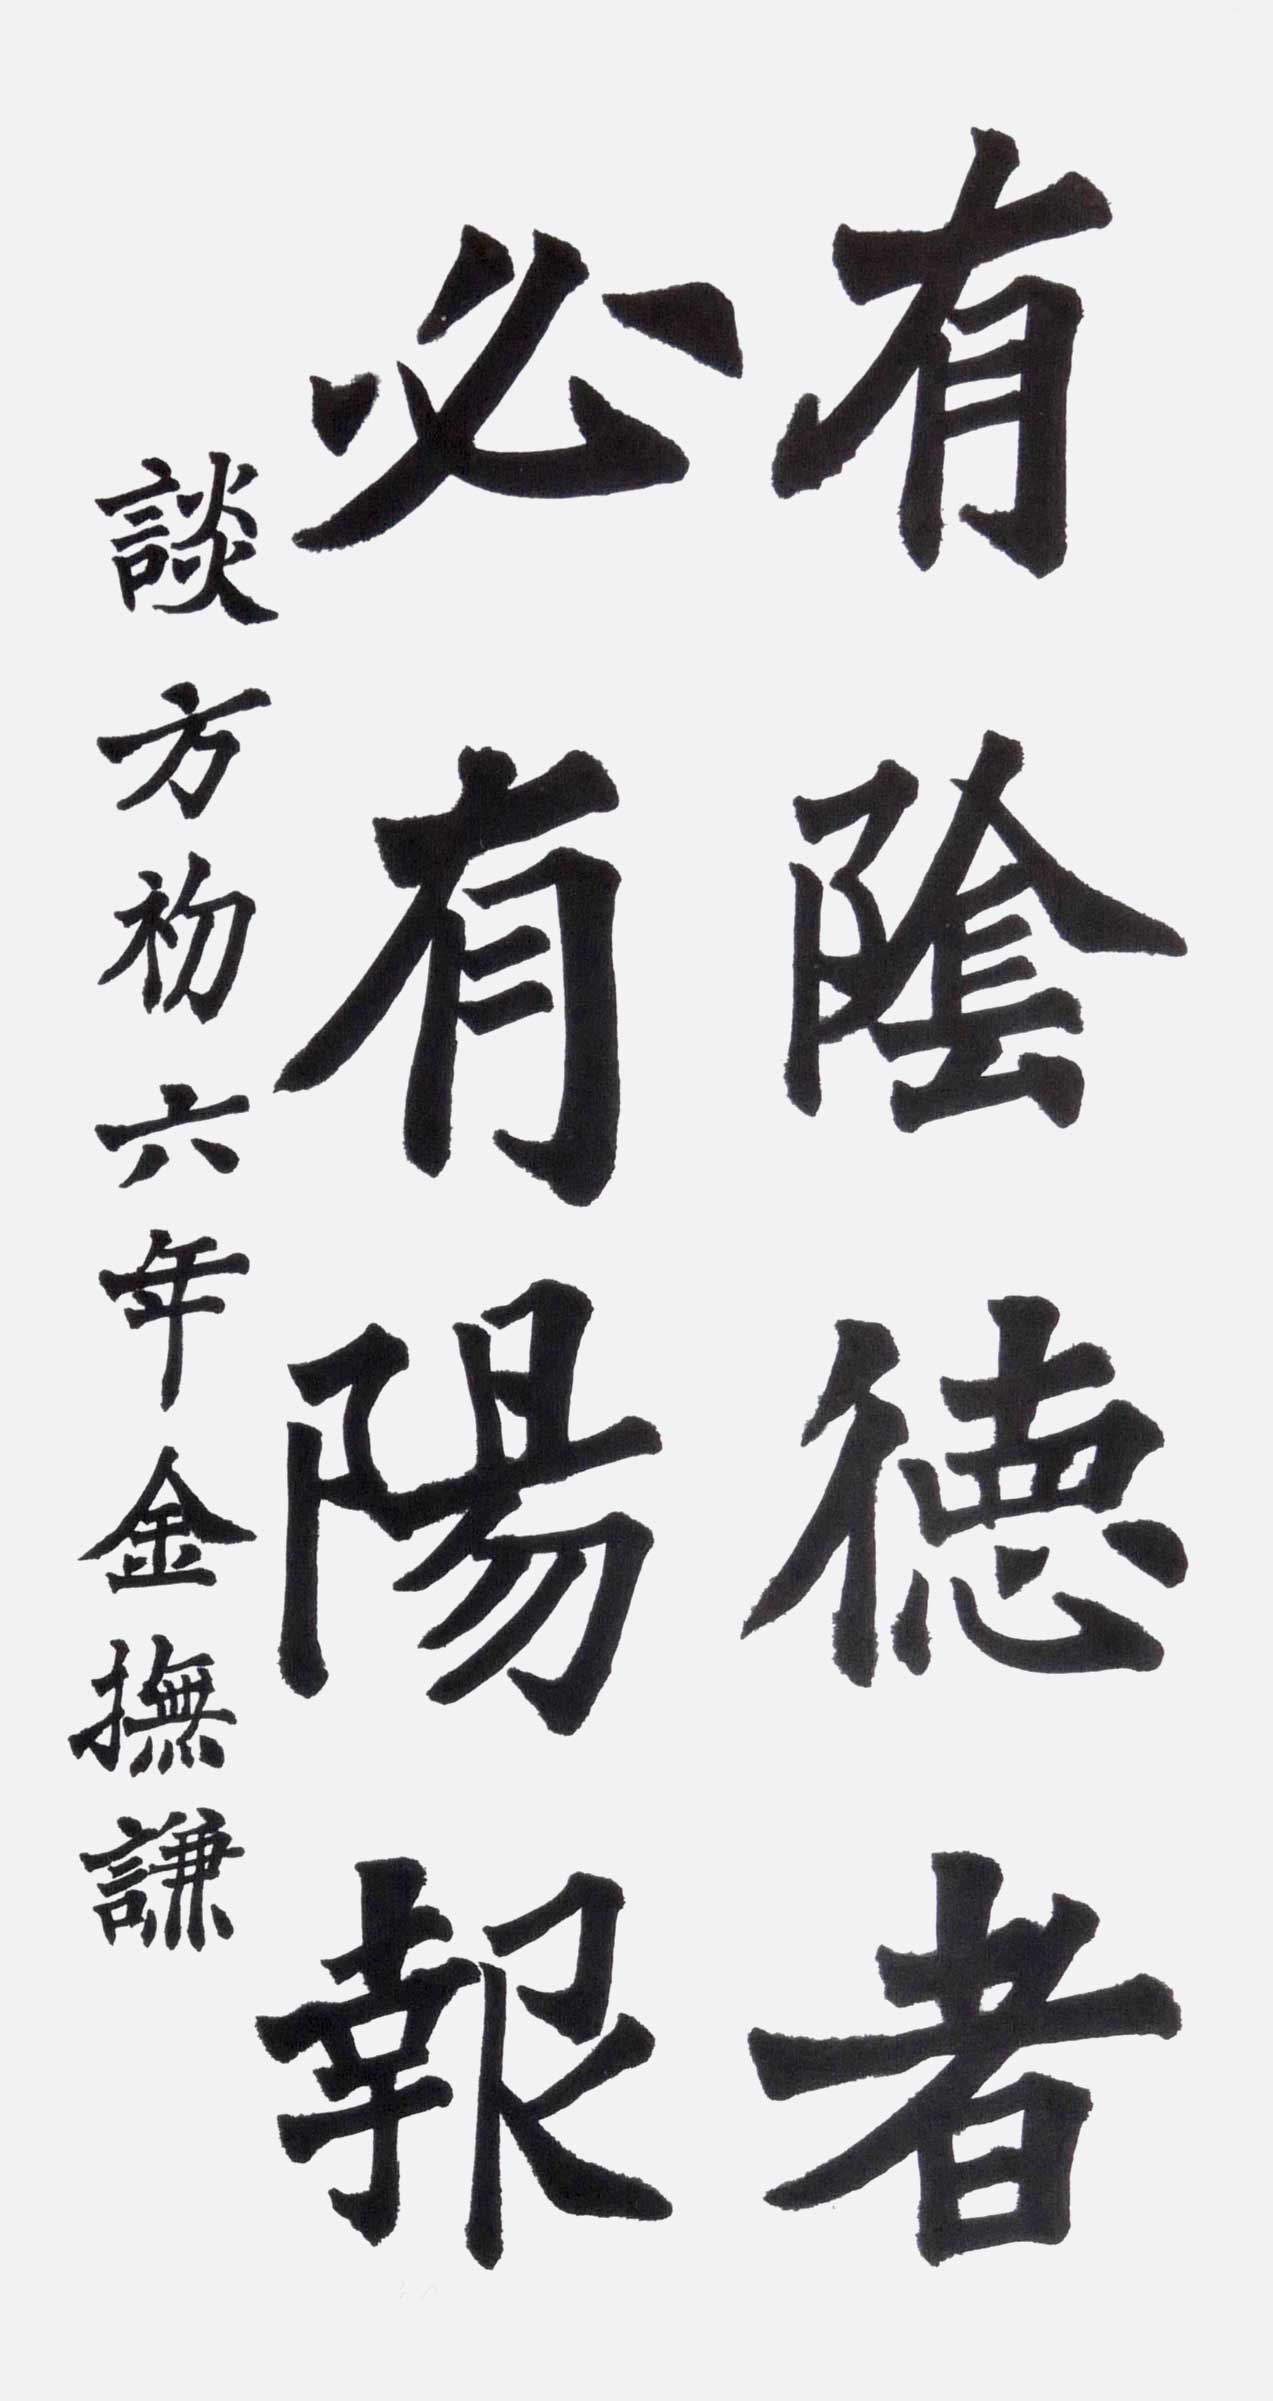 有陰德者
必有陽報
談方初六年金撫謙